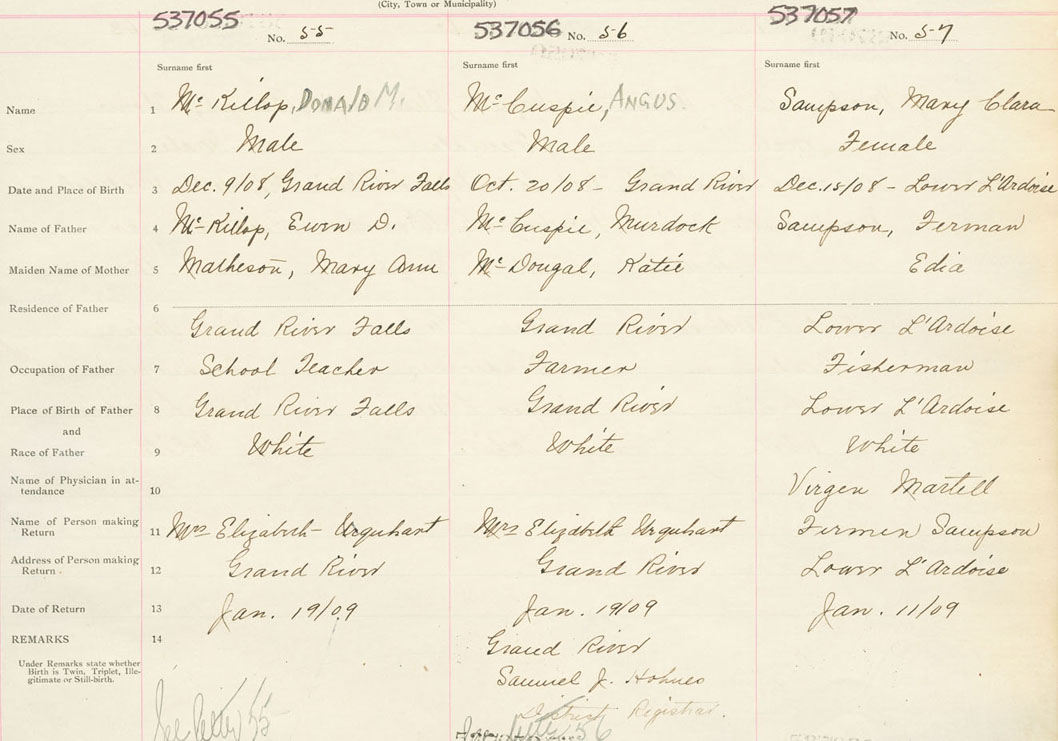 (City, Town or Municipality)
537055 No. 55 537056 No. 56 537057 No. 57
Surname first Surname first Surname first
Name 1 Mc Killop, DONALD M. Mc Cuspie, ANGUS. Sampson, Mary Clara
Sex 2 Male Male Female
Date and Place of Birth 3 Dec. 9/08, Grand River Falls Oct. 20/08 - Grand River Dec. 15/08 - Lower L'Ardoise
Name of Father 4 Mc Killop, Ewen D. Mc Cuspie, Murdock Sampson, Ferman
Maiden Name of Mother 5 Matheson, Mary Ann Mc Dougal, Katie Edia
Residence of Father 6
Grand River Falls Grand River Lower L'Ardoise
Occupation of Father 7 School Teacher Farmer Fisherman
Place of Birth of Father 8 Grand River Falls Grand River Lower L'Ardoise
and
Race of Father 9 White White White
Name of Physician in at-
tendance 10 Virgen Martell
Name of Person making
Return 11 Mrs Elizabeth Urquhart Mrs Elizabeth Urquhart Firmen Sampson
Address of Person making
Return . 12 Grand River Grand River Lower L'Ardoise
Date of Return 13 Jan. 19/09 Jan. 19/09 Jan. 11/09
REMARKS 14 Grand River
Under Remarks state whether
Birth is Twin, Triplet, Ille-
gitimate or Still-birth.
Samuel J. Holmes
District Registrar.
See letter 55 letter 56